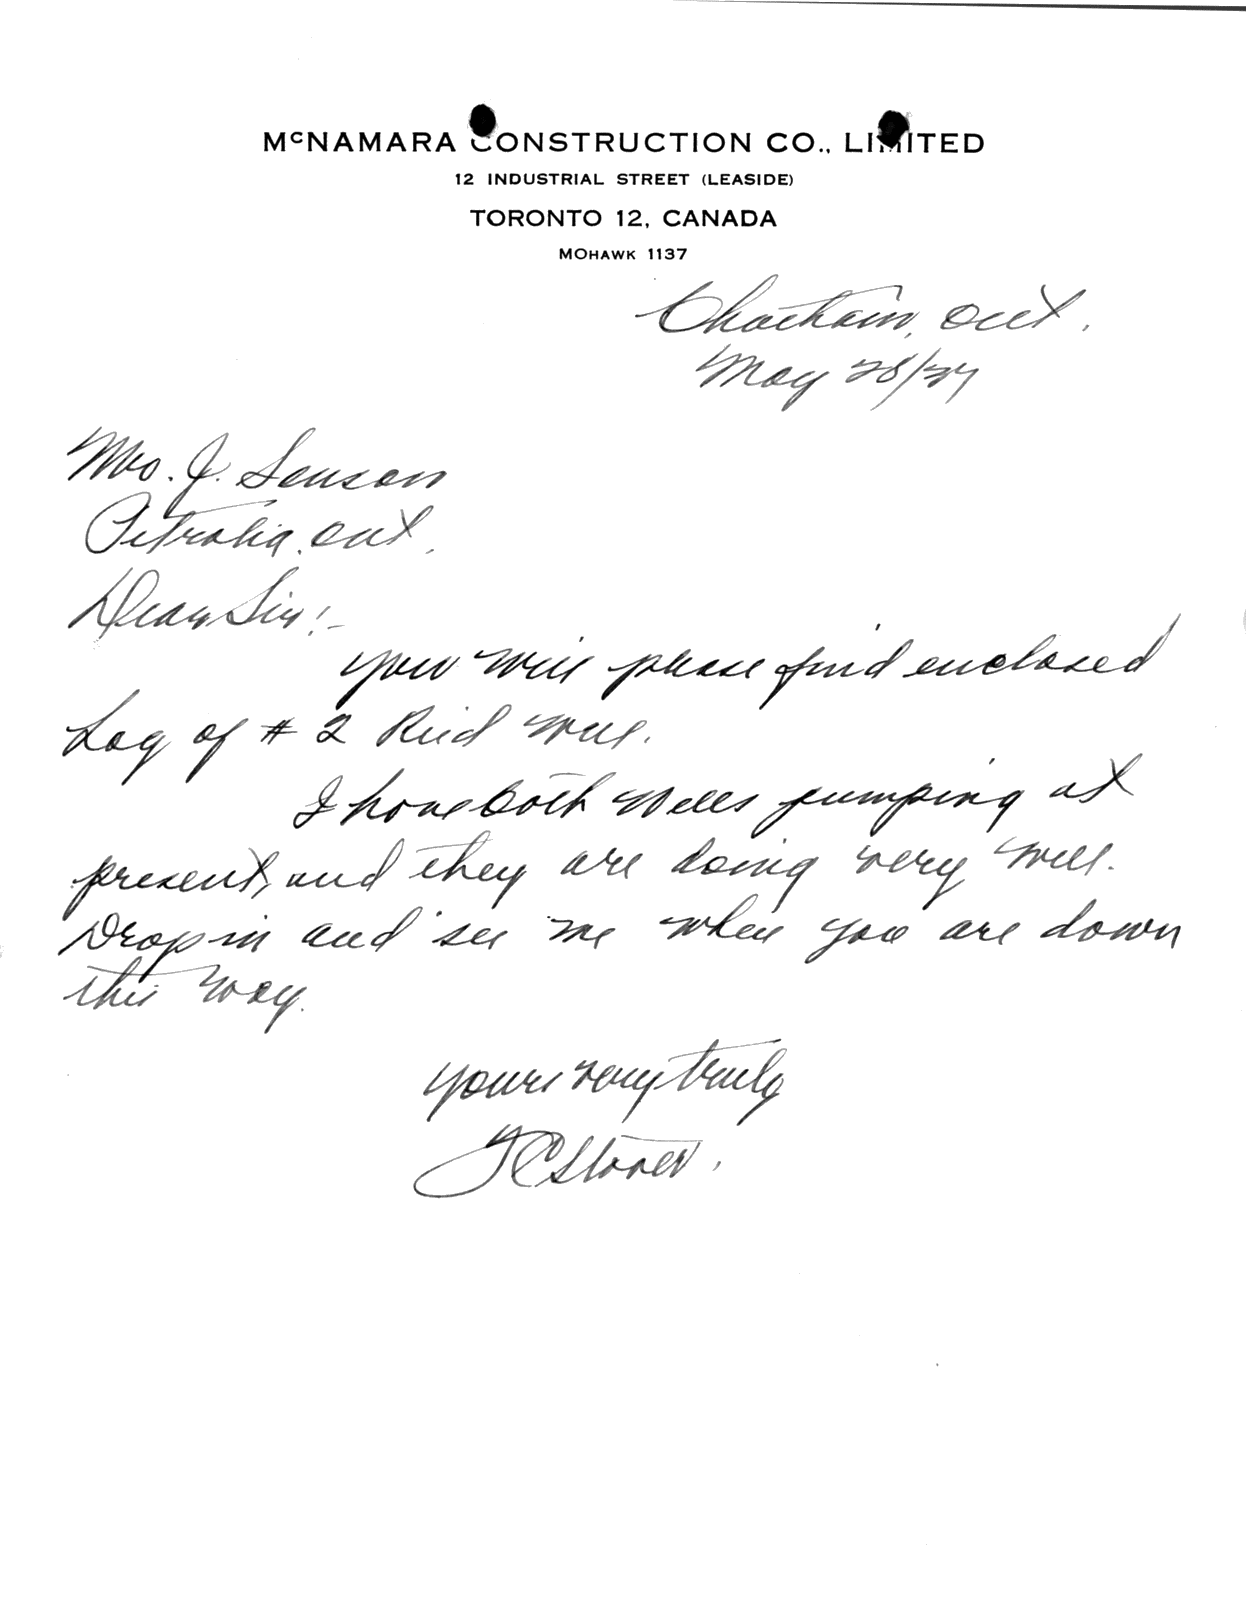 McNAMARA CONSTRUCTION CO., LIMITED
12 INDUSTRIAL STREET (LEASIDE)
TORONTO 12, CANADA
MOHAWK 1137
Chatham, Ont.
May 28/
J.
Petrolia, Ont.
Dear Sir:-
You will please find enclosed
Log of # 2 Reid Well.
I have both Wells pumping at
present, and they are doing very well.
Drop in and see me when you are down
this way.
Yours very truly